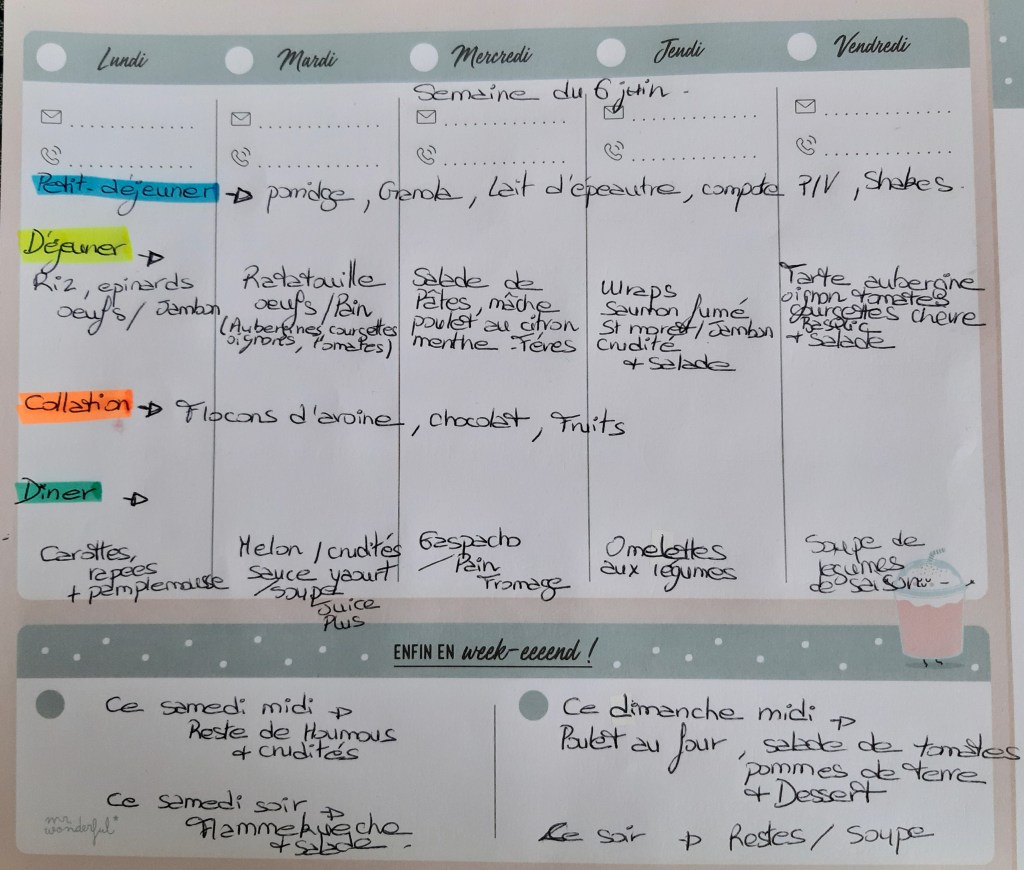 Lundi
Mardi
Mercredi
Jeudi
Vendredi
Semaine du 6 juin -
Petit-déjeuner → porridge, Granola, Lait d'épeautre, compote P/V, Shakes.
Déjeuner →
Riz, epinards
oeufs / Jambon
Ratatouille
oeufs / Pain
(Aubergines, courgettes
oignons, Tomates)
Salade de
Pâtes, mâche
poulet au citron
menthe - Fèves
Wraps
Saumon fumé
St moret / Jambon
Crudité
+ Salade
Tarte aubergine
oignon tomates
courgettes chèvre
Basilic
+ Salade
Collation → Flocons d'avoine, chocolat, Fruits
Diner →
Carottes,
rapees
+ pamplemousse
Melon / crudités
sauce yaourt
/ soupe
Juice
Plus
Gaspacho
/ Pain
Fromage
Omelettes
aux légumes
Soupe de
légumes
de saison
ENFIN EN week-eeeend !
Ce samedi midi →
Reste de Houmous
+ crudités
Ce samedi soir →
Flammekueche
+ salade.
Ce dimanche midi →
Poulet au four, salade de tomates
pommes de terre
+ Dessert
Ce soir → Restes / Soupe
mr wonderful*